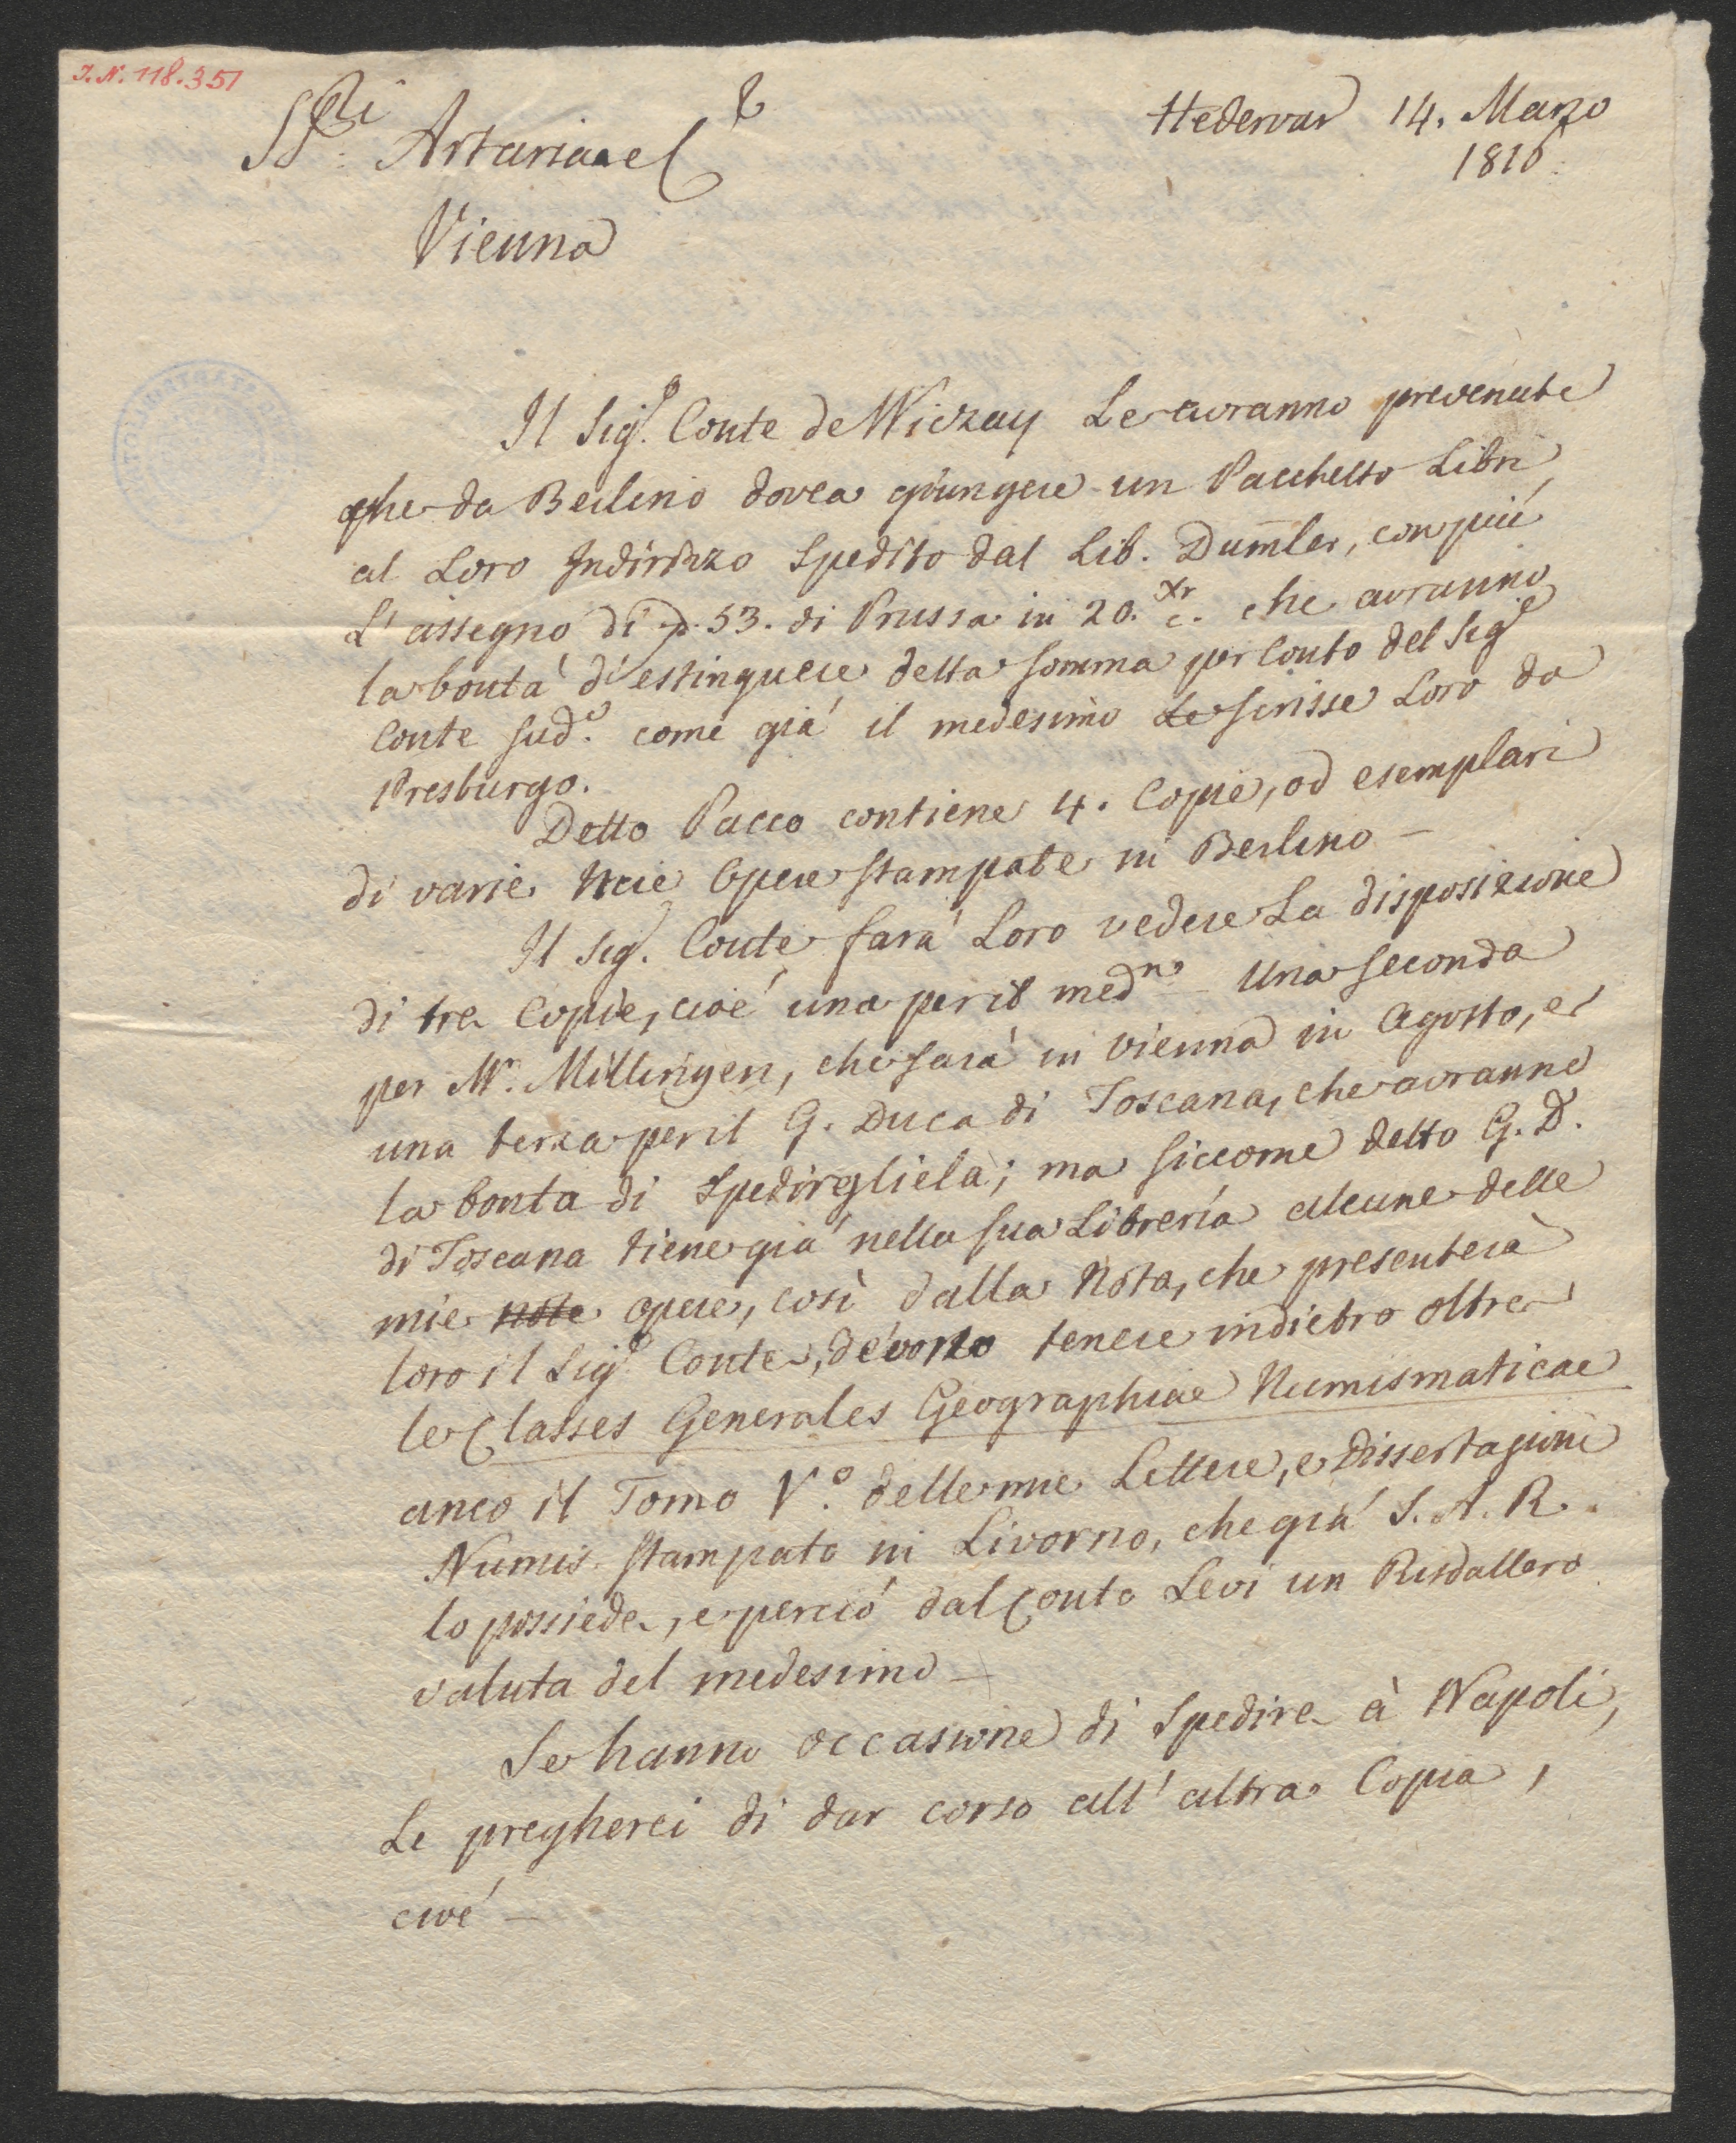 J. N. 118.351
SS.ri Artaria e C.
Hedervar 14. Marzo
1816.
Vienna
Il Sig.e Conte de Wiczay Le avranno prevenute
che da Berlino dovea giungere un Pacchetto Libri,
al Loro Indirizzo Spedito dal Lib. Dum̄ler, con più
L'assegno di 53. di Prussa in 20. Xr che avranno
la bontá d'estinguere detta Somma per Conto del Sig.e
Conte Sud.o come giá il medesimo Le scrisse Loro da
Presburgo.
Detto Pacco contiene 4. Copie, od esemplari
di varie mie Opere stampate in Berlino —
Il Sig. Conte fará Loro vedere La disposizione
di tre Copie, cioé una per il med.mo Una seconda
per Mr. Millingen, che sará in Vienna in Agosto, e
una terza per il G. Duca di Toscana, che avranno
la bonta di Spedirgliela; ma siccome detto G. D.
di Toscana tiene giá nella sua Librería alcune delle
mie note opere, cosi dalla Nota, che presenterà
loro il Sig.e Conte, devono tenere indietro oltre
le Classes Generales Geographiae Numismaticae
anco il Tomo V.o delle mie Lettere, e Dissertazioni
Numis. stampato in Livorno, che giá S. A. R.
lo possiede, e perció dal Conto Levi un Risdallero
valuta del medesimo —
Se hanno occasione di Spedire à Napoli,
Le pregherei di dar corso all'altra Copia,
cioé —